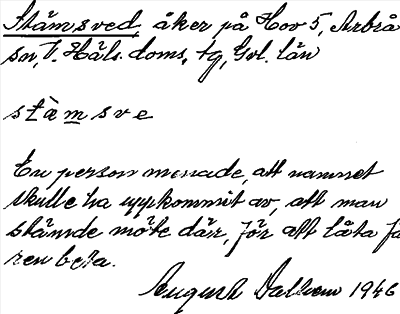 Stämsved, åker på Hov 5, Arbrå
sn, V. Häls. doms, tg, Gvl. län
stàmsve
En person menade, att namnet
skulle ha uppkommit av, att man
stämde möte där, för att låta få
ren beta.
August Dalhem 1946